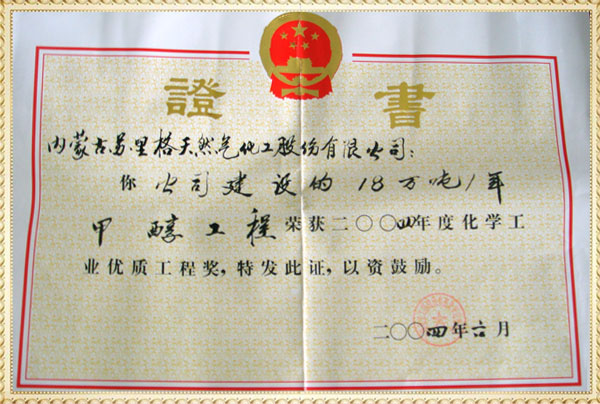 證書
内蒙古苏里格天然气化工股份有限公司:
你公司建设的18万吨/年
甲醇工程荣获二〇〇四年度化学工
业优质工程奖，特发此证，以资鼓励。
二〇〇四年六月